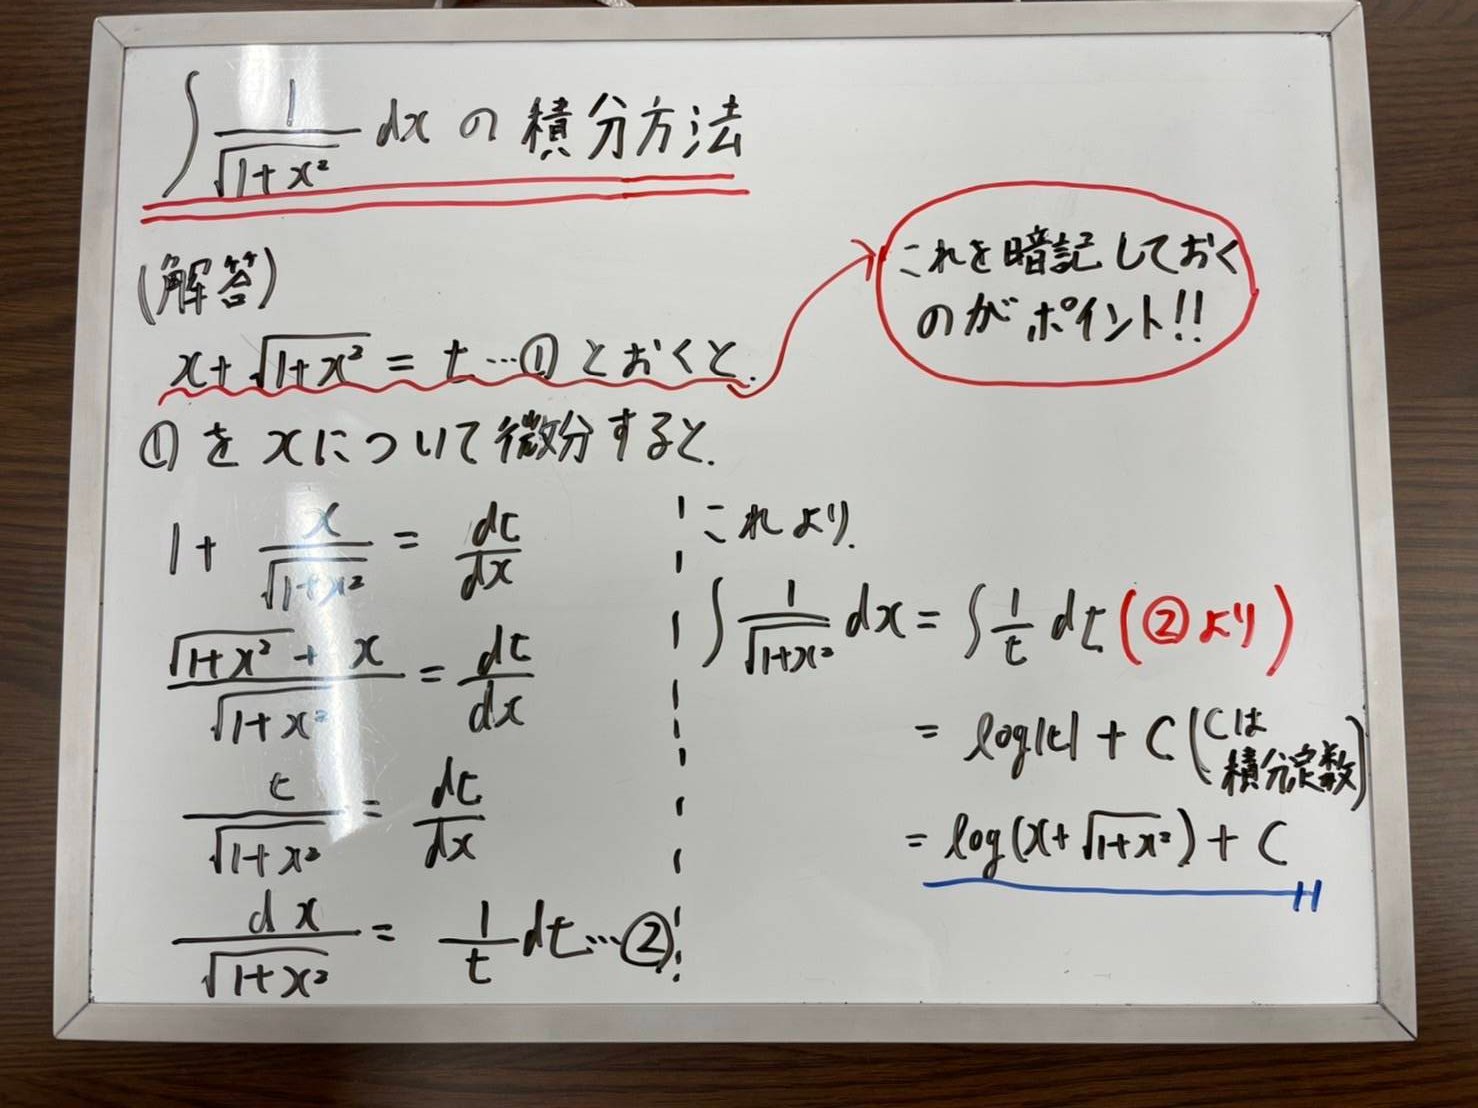 ∫ 1/√(1+x²) dx の積分方法
(解答)
x+√(1+x²) = t …① とおくと.
これを暗記しておく
のがポイント!!
①をxについて微分すると.
1+ x/√(1+x²) = dt/dx
(√(1+x²) + x)/√(1+x²) = dt/dx
t/√(1+x²) = dt/dx
dx/√(1+x²) = 1/t dt …②
これより.
∫ 1/√(1+x²) dx = ∫ 1/t dt (②より)
= log|t| + C (Cは
積分定数)
= log(x+√(1+x²)) + C